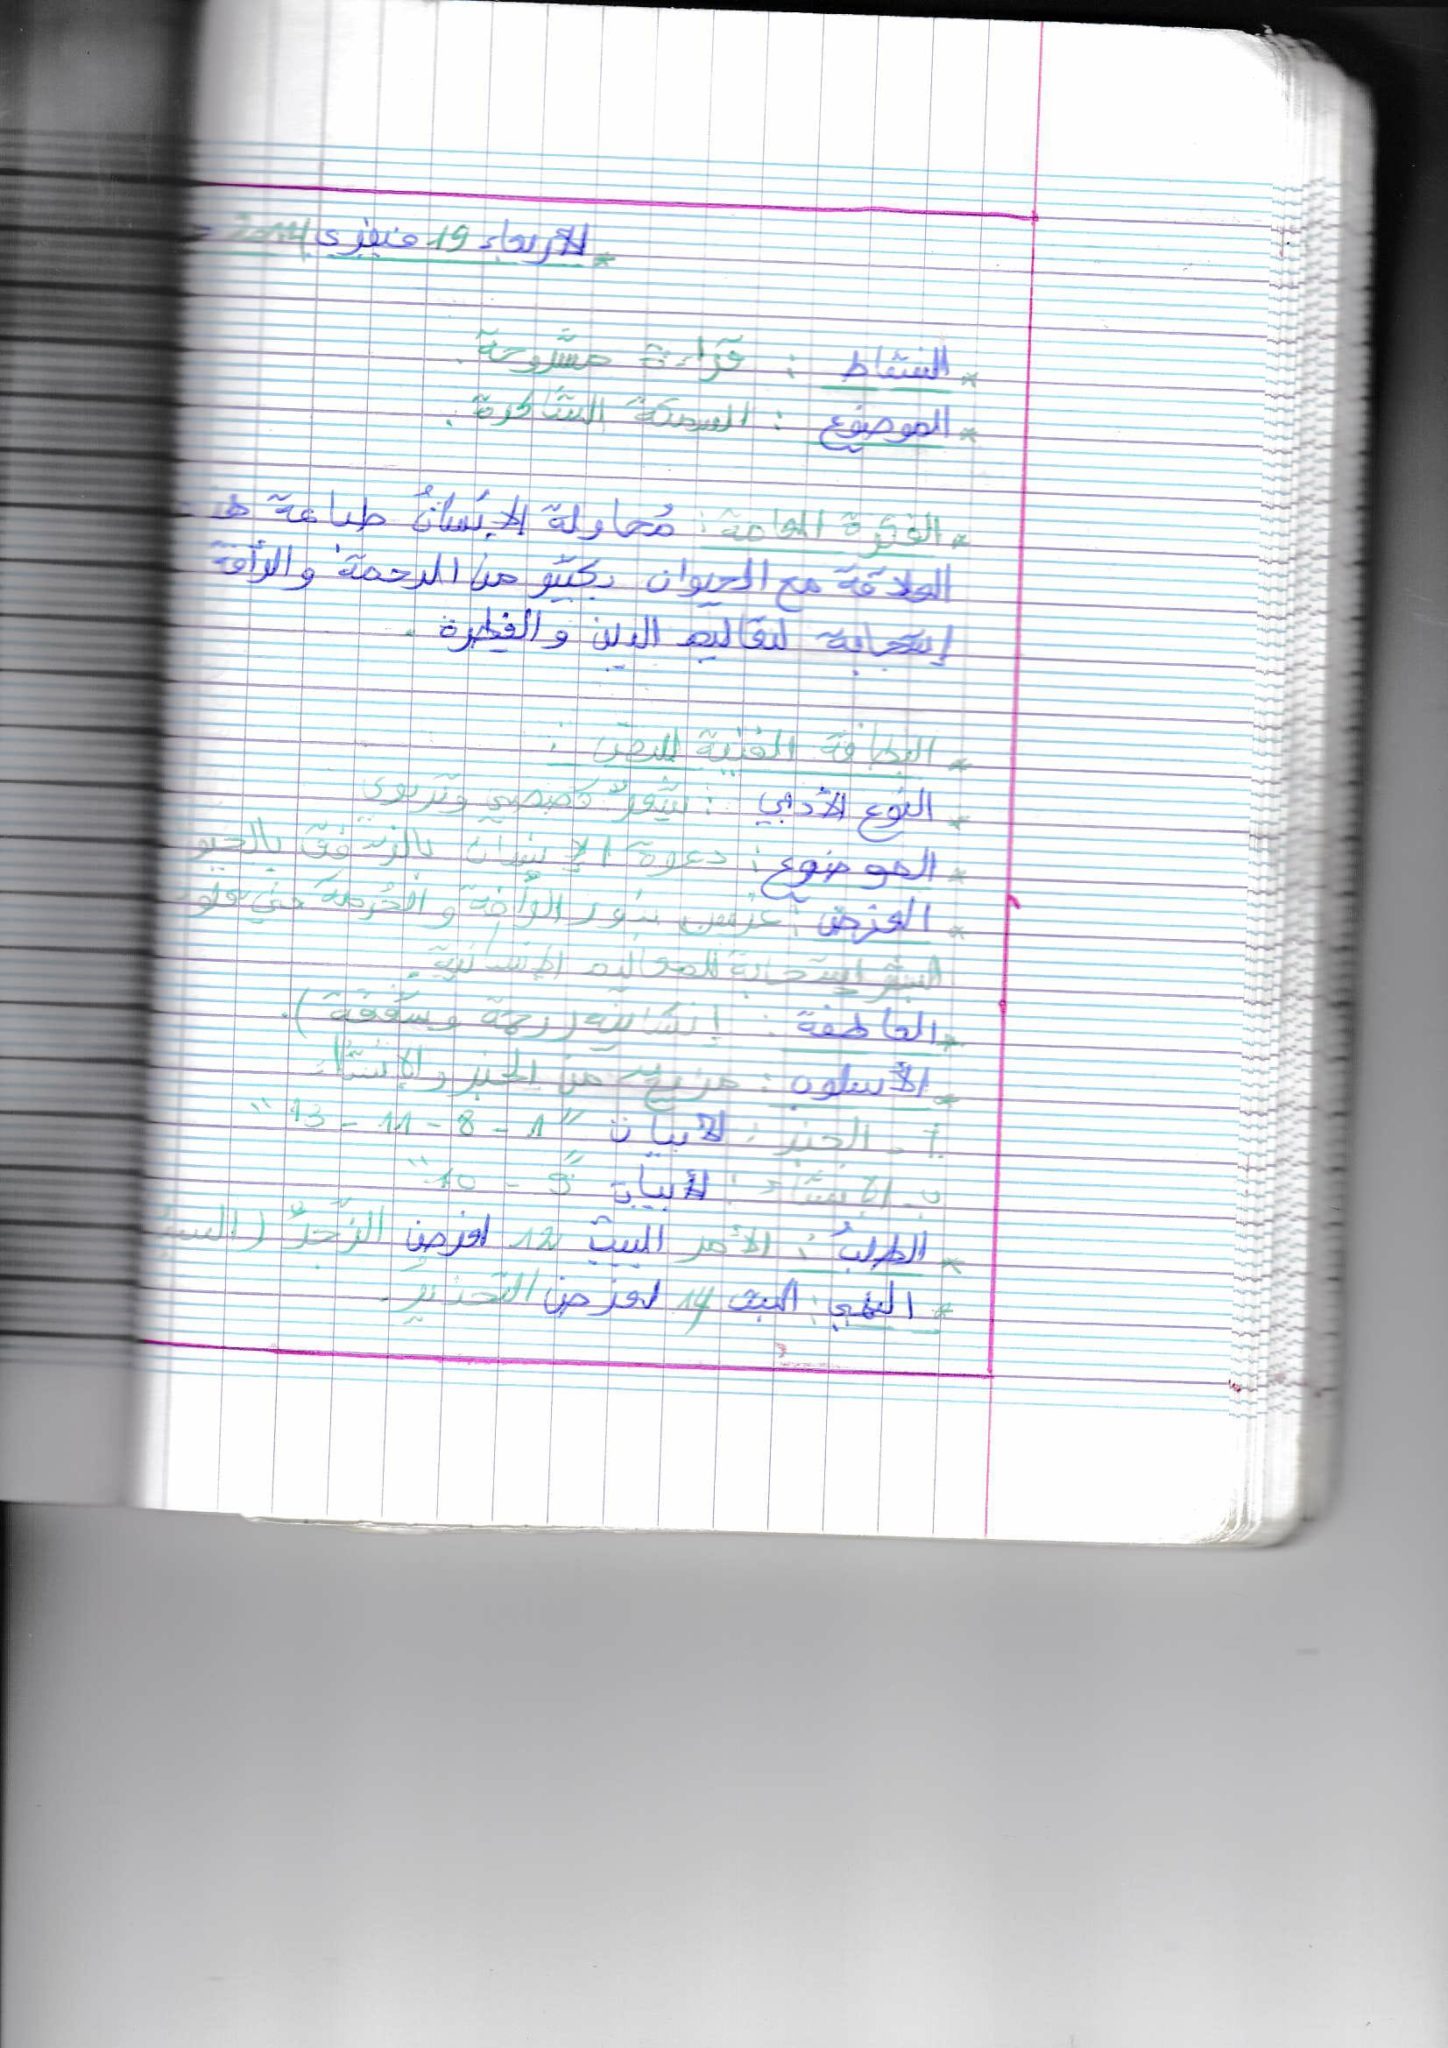 * الأربعاء 19 فيفري 2014
* النشاط : قراءة مشروحة.
* الموضوع : السمكة الشاكرة.
* الفكرة العامة : مُحاولة الإنسان طباعة هـ
العلاقة مع الحيوان بكثير من الرحمة والرأفة
إستجابة لتعاليم الدين والفطرة.
* البطاقة الفنية للنص :
* النوع الأدبي : شعر قصصي وتربوي
* الموضوع : دعوة الإنسان بالرفق بالحيو
* الغرض : غرس بذور الرأفة و الرحمة في قلو
البشر إستجابة لتعاليم الإنسانية.
* العاطفة : إنسانية (رحمة وشفقة).
* الأسلوب : مزيج من الخبر والإنشاء
أ - الخبر : الأبيات "1 - 8 - 11 - 13"
ب - الإنشاء : الأبيات "9 - 10"
* الطلب : الأمر البيت 12 لغرض الزجر (
* النهي : البيت 14 لغرض التحذير.